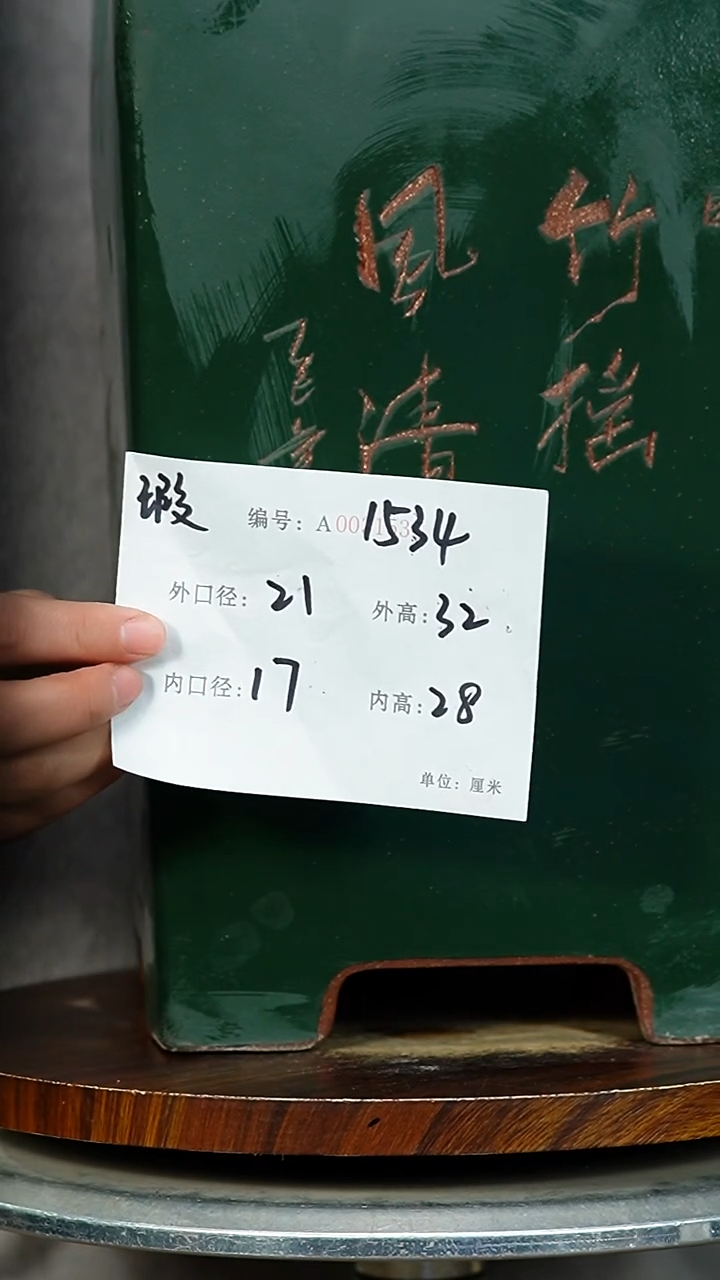 竹摇
风清
瑕 编号: A 1534
外口径: 21 外高: 32
内口径: 17 内高: 28
单位: 厘米